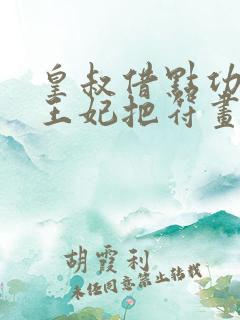 皇叔借點功
王妃把符畫
胡霞利
未经同意禁止转载